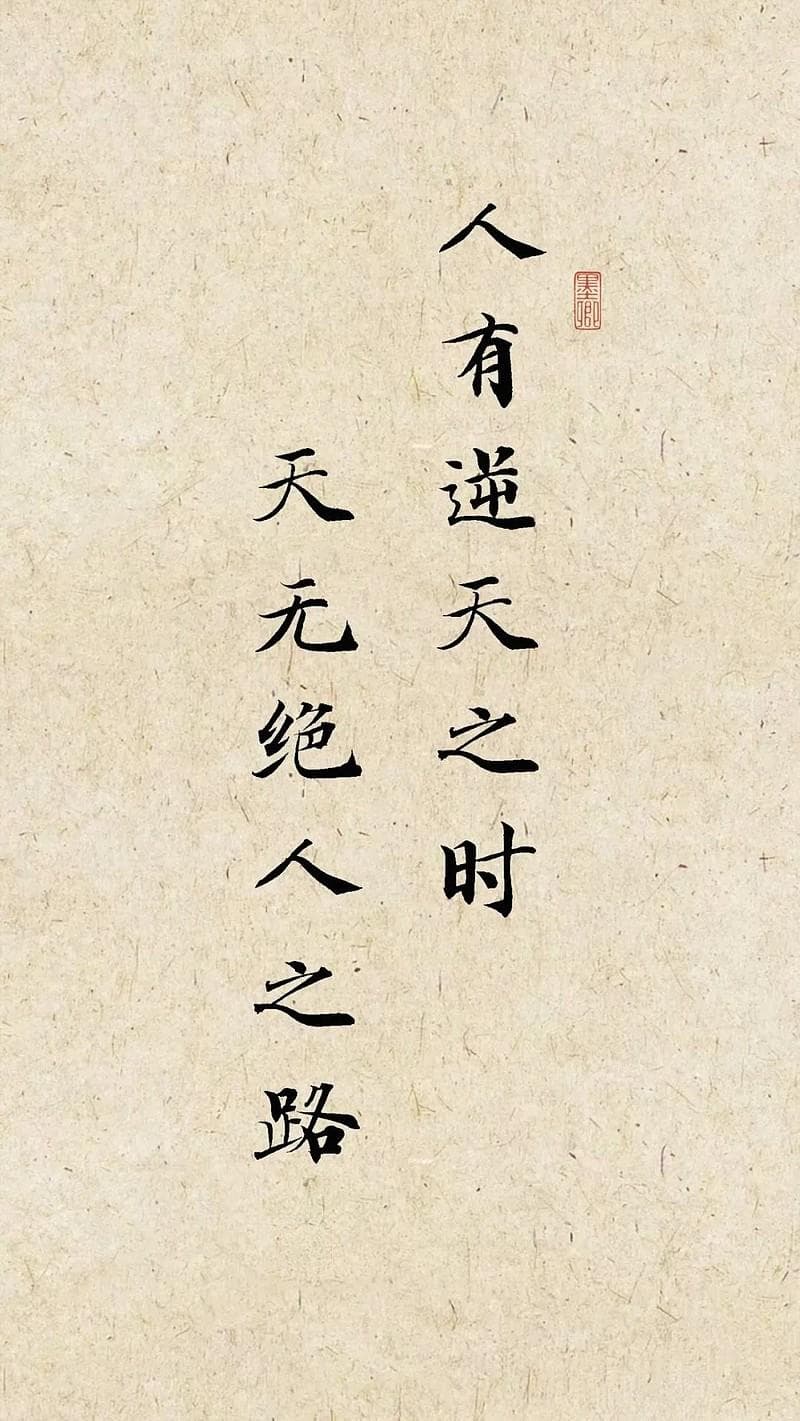 人有逆天之时
天无绝人之路
墨卿